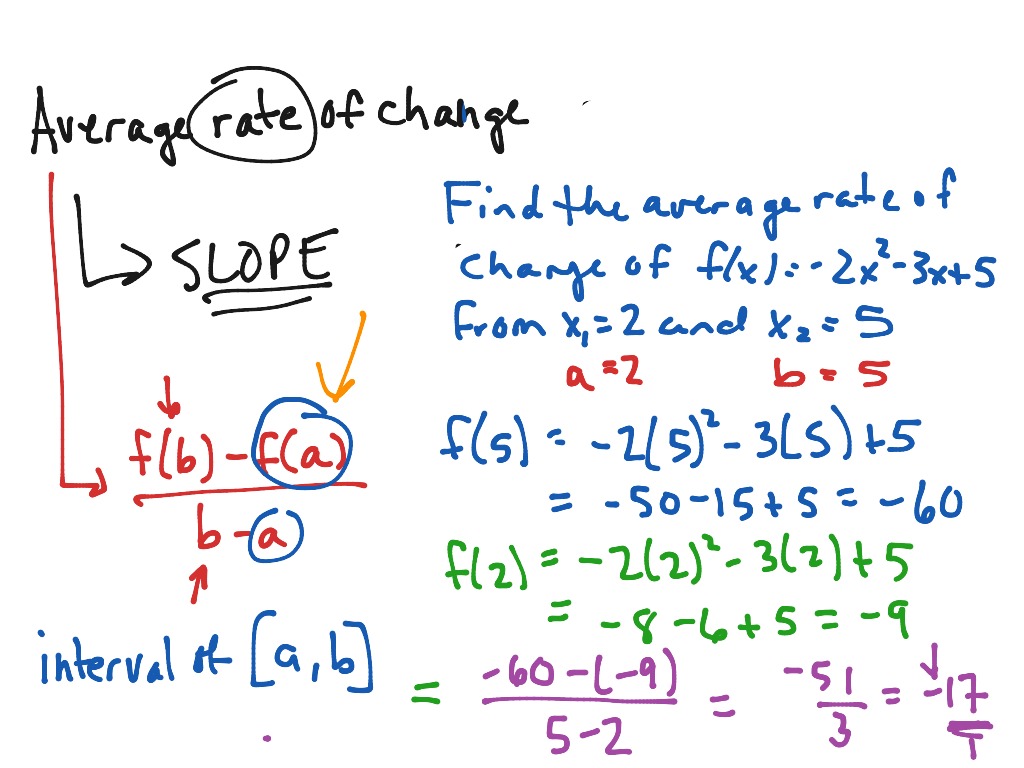 Average rate of change
SLOPE
f(b) - f(a)
b - a
interval of [a, b]
Find the average rate of
change of f(x) = -2x² - 3x + 5
from x₁ = 2 and x₂ = 5
a = 2 b = 5
f(5) = -2(5)² - 3(5) + 5
= -50 - 15 + 5 = -60
f(2) = -2(2)² - 3(2) + 5
= -8 - 6 + 5 = -9
= -60 - (-9) / 5 - 2 = -51 / 3 = -17 / 1